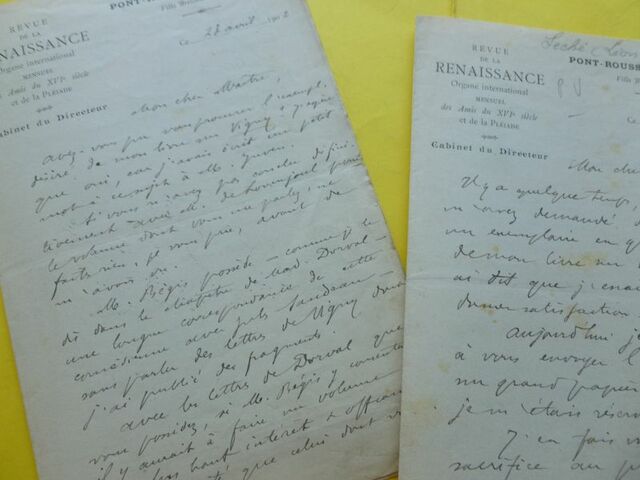 REVUE
DE LA
RENAISSANCE
Organe international
MENSUEL
des Amis du XVIe siècle
et de la PLÉIADE
Cabinet du Directeur
PONT-ROUSS
Ce 28 avril 1902
Mon cher Maître,
Avez-vous pu vous procurer l'exempl.
désiré de mon livre sur Vigny ? J'espère
que oui, car j'avais écrit un petit
mot à ce sujet à M.
Si vous n'avez pas conclu défini-
tivement avec M. de Lovenjoul pour
le volume dont vous me parlez, ne
faites rien, je vous prie, avant de
m'avoir vu.
M. Bégis possède — comme je le
dis dans le chapitre de Mad. Dorval —
une longue correspondance de cette
comédienne avec Jules Sandeau —
sans parler des lettres de Vigny dont
j'ai publié des fragments.
avec les lettres de Dorval que
vous possédez, si M. Bégis y consentait
il y aurait à faire un volume
plus haut intérêt &
que celui dont v
REVUE
DE LA
RENAISSANCE
Organe international
MENSUEL
des Amis du XVIe siècle
et de la PLÉIADE
Cabinet du Directeur
Séché (Léon
PONT-ROUSS
Ce
Mon che
Il y a quelque temps,
m'avez demandé
un exemplaire en g
de mon livre sur
ai dit que j'essai
donner satisfaction
aujourd'hui je
à vous envoyer l
un grand papier
je m'étais réser
J'en fais
sacrifice au p